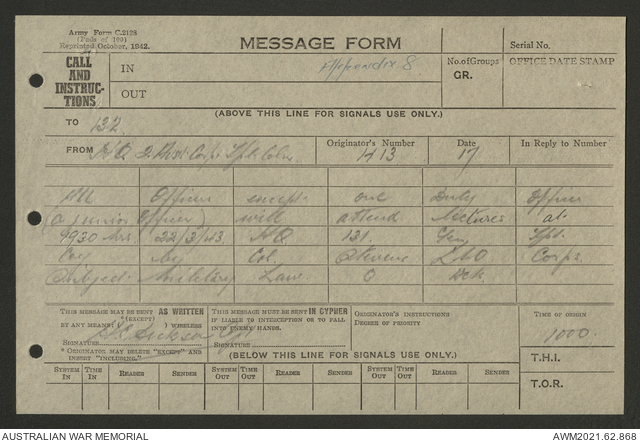 Army Form C.2128
(Pads of 100)
Reprinted October, 1942.
MESSAGE FORM
Serial No.
CALL AND INSTRUCTIONS
IN
Appendix 8
No. of Groups
GR.
OFFICE DATE STAMP
OUT
(ABOVE THIS LINE FOR SIGNALS USE ONLY.)
TO 132
FROM HQ 2 Aust Corps Tpt Coln
Originator's Number 413
Date 17
In Reply to Number
All Officers except one Duty Officer
(a junior Officer) will attend lectures at
1930 hrs 22/3/43 HQ 131 Gen Tpt
Coy by Col. Stevens Corps
Subject Military Law
THIS MESSAGE MAY BE SENT AS WRITTEN
BY ANY MEANS (EXCEPT) WIRELESS
SIGNATURE Dickson
* ORIGINATOR MAY DELETE "EXCEPT" AND
INSERT "INCLUDING."
THIS MESSAGE MUST BE SENT IN CYPHER
IF LIABLE TO INTERCEPTION OR TO FALL
INTO ENEMY HANDS.
SIGNATURE
ORIGINATOR'S INSTRUCTIONS
DEGREE OF PRIORITY
TIME OF ORIGIN
1000
T.H.I.
T.O.R.
(BELOW THIS LINE FOR SIGNALS USE ONLY.)
SYSTEM IN TIME IN READER SENDER SYSTEM OUT TIME OUT READER SENDER SYSTEM OUT TIME OUT READER SENDER
AUSTRALIAN WAR MEMORIAL
AWM2021.62.868